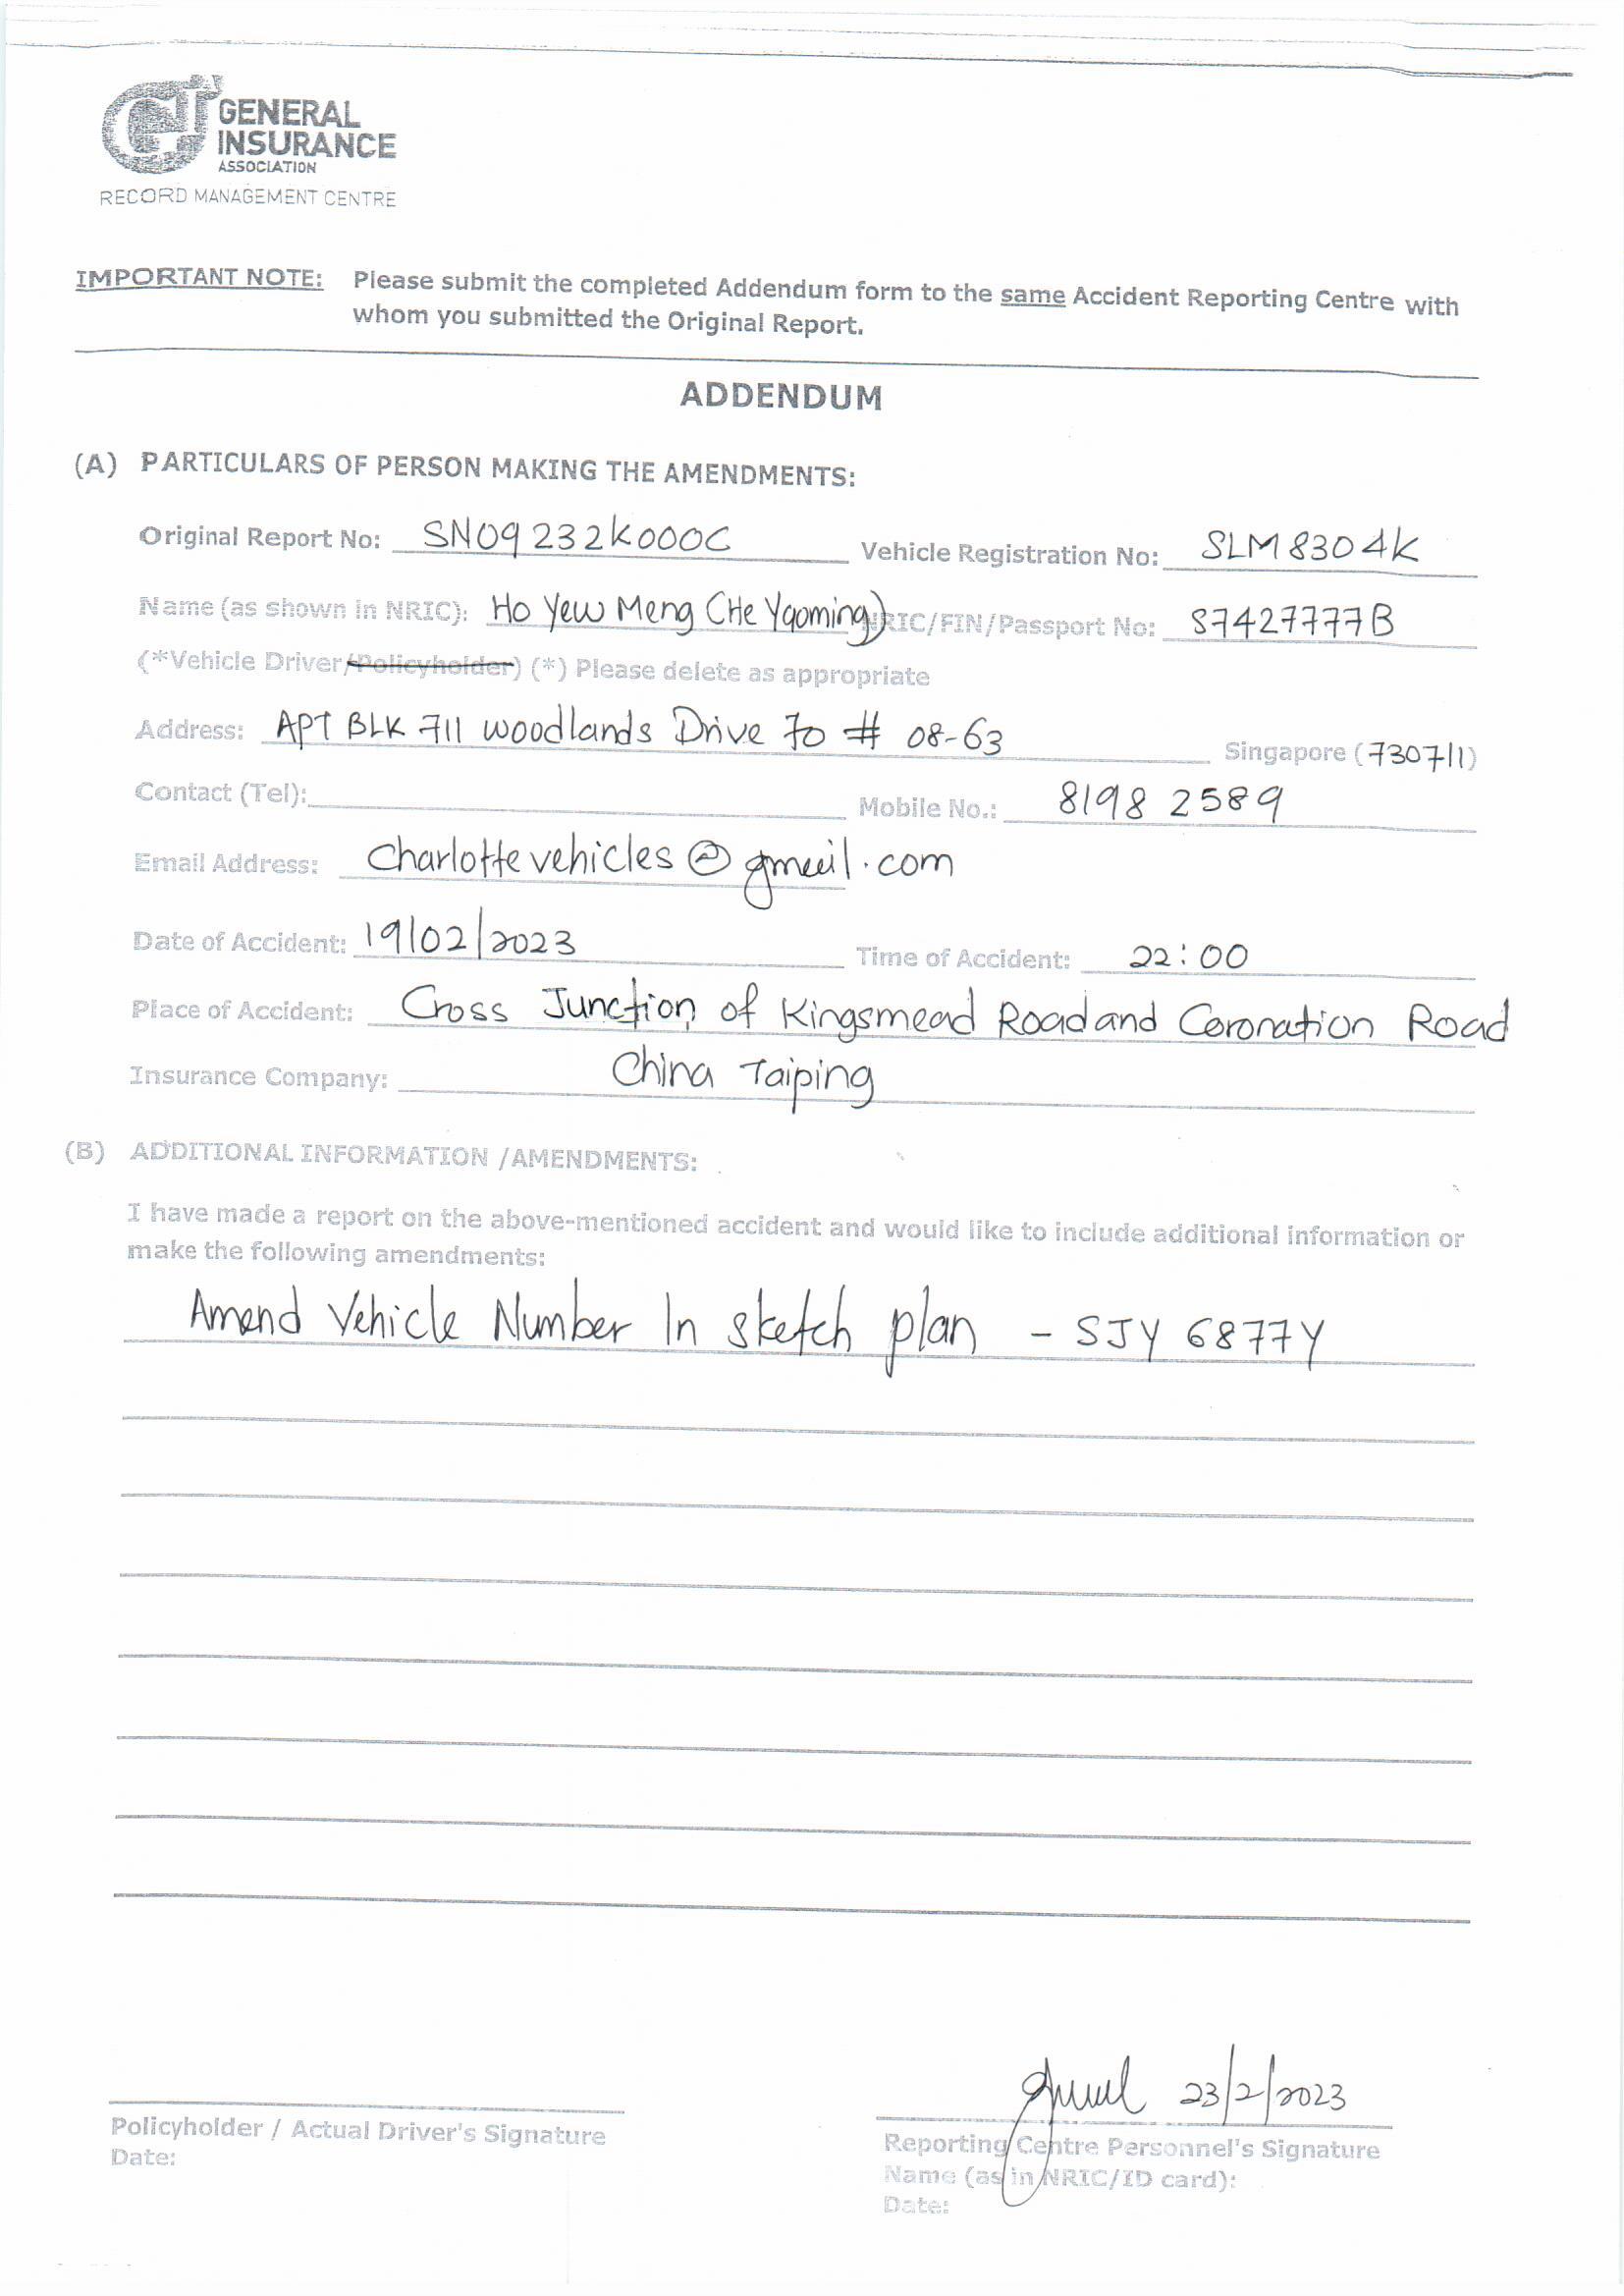 GENERAL
INSURANCE
ASSOCIATION
RECORD MANAGEMENT CENTRE
IMPORTANT NOTE: Please submit the completed Addendum form to the same Accident Reporting Centre with
whom you submitted the Original Report.
ADDENDUM
(A) PARTICULARS OF PERSON MAKING THE AMENDMENTS:
Original Report No: SN09232K000C Vehicle Registration No: SLM8304K
Name (as shown in NRIC): Ho Yew Meng (He Yaoming) NRIC/FIN/Passport No: S7427777B
(*Vehicle Driver/Policyholder) (*) Please delete as appropriate
Address: APT BLK 711 woodlands Drive 70 # 08-63 Singapore (730711)
Contact (Tel): Mobile No.: 8198 2589
Email Address: Charlottevehicles@gmail.com
Date of Accident: 19/02/2023 Time of Accident: 22:00
Place of Accident: Cross Junction of Kingsmead Road and Coronation Road
Insurance Company: China Taiping
(B) ADDITIONAL INFORMATION /AMENDMENTS:
I have made a report on the above-mentioned accident and would like to include additional information or
make the following amendments:
Amend Vehicle Number In sketch plan - SJY 6877Y
23/2/2023
Policyholder / Actual Driver's Signature
Date:
Reporting Centre Personnel's Signature
Name (as in NRIC/ID card):
Date: